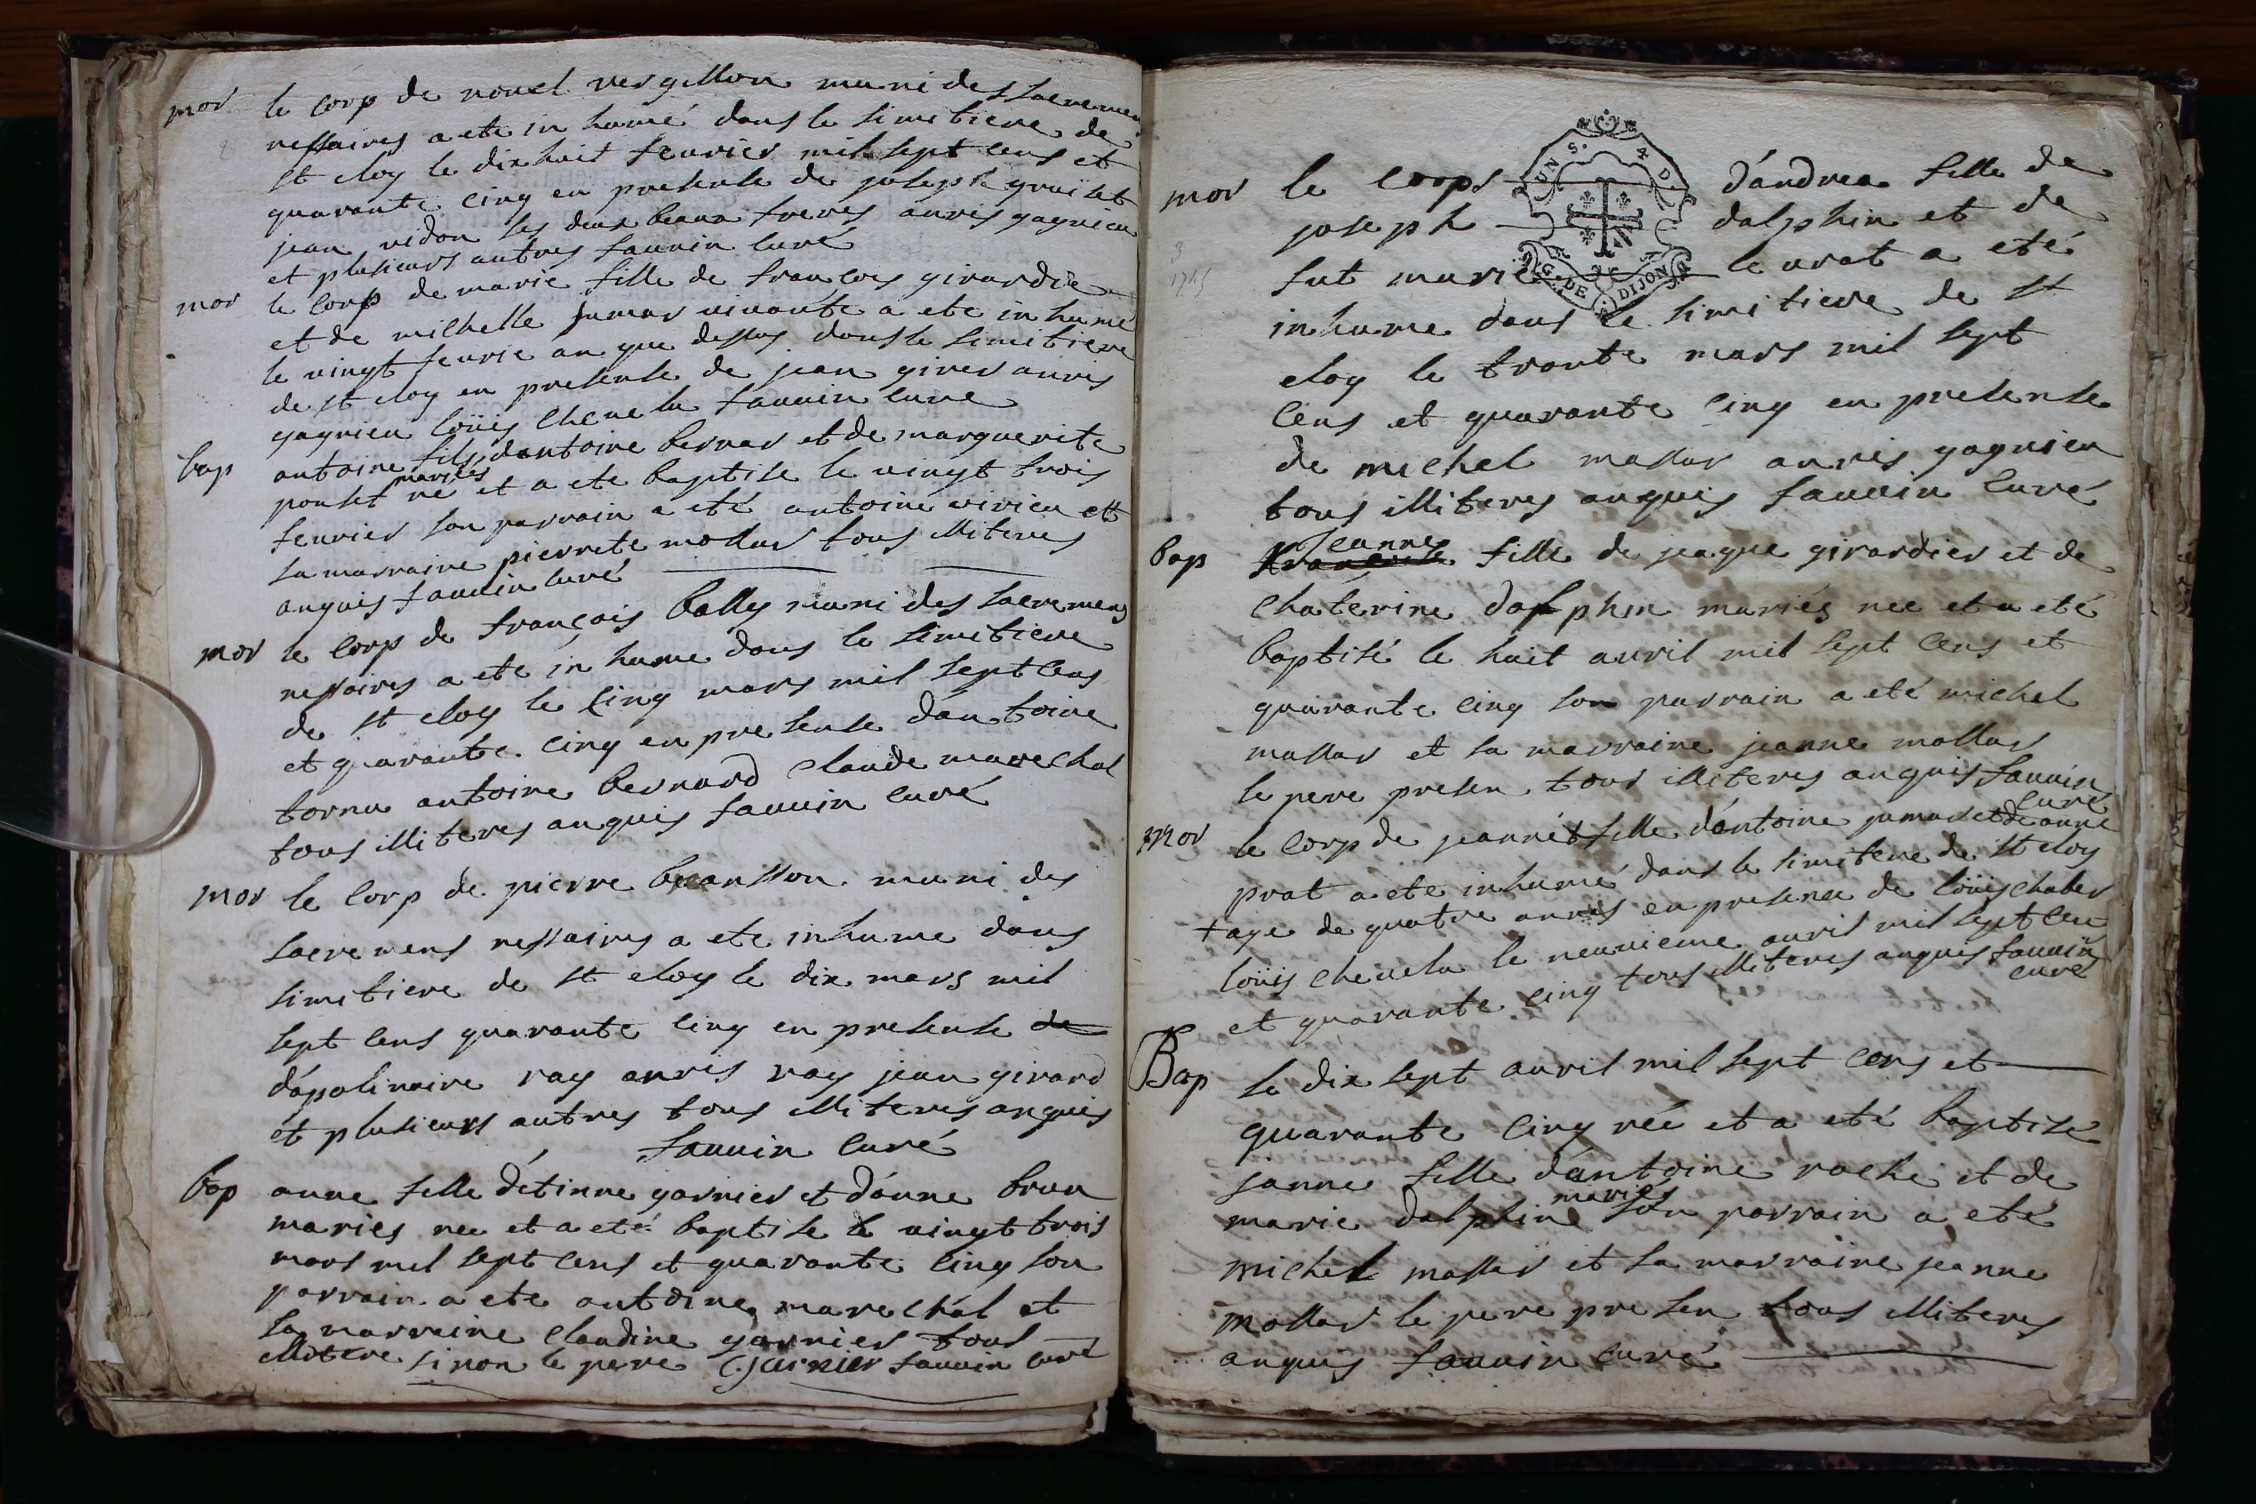 mor le corp de nouel vergillon muni des sacremen
nessaires a ete in humé dans le simetiere de
st eloy le dix huit feurier mil sept cens et
quarante cinq en presense de joseph
jean vidon ses deux beaux freres annis gagnieu
et plusieurs autres fauuin curé
mor le corp de marie fille de francois girardie
et de michelle jumar viuante a ete in humé
le vingt feurie an que dessus dans le simitiere
de st eloy en presense de jean annis
gagnieu loüis cheuelu fauuin cure
bap antoine fils dantoine bernar et de marguerite
ponset mariés né et a ete baptise le vingt trois
feurier son parrain a eté antoine virieu et
sa marraine pierrete mollar tous illiteres
anquis fauuin curé
mor le corp de françois bally muni des sacremens
nessaires a ete in hume dans le simitiere
de st eloy le cinq mars mil sept cens
et quarante cinq en presense dan toine
tornu antoine bernard claude marechal
tous illiteres anquis fauuin curé
mor le corp de pierre muni des
sacremens nessaires a ete inhume dans
simitiere de st eloy le dix mars mil
sept cens quarante cinq en presense de
dápolinaire ray annis ray jean girard
et plusieurs autres tous illiteres anquis
fauuin curé
bap anne fille détinne garnier et dánne brun
maries nee et a eté baptise le vingt trois
mars mil sept cens et quarante cinq son
parrain a ete antoine marechal et
sa marraine claudine garnier tous
illitere sinon le pere C. garnier fauuin curé
3
1745
UN S. 4 D.
G. DE DIJON
mor le corps dándrea fille de
joseph dalphin et de
fut marie leurat a eté
inhume dans le simitiere de st
eloy le trante mars mil sept
cens et quarante cinq en presense
de michel mollar annis gagnieu
tous illiteres anquis fauuin curé
jeanne
bap francoise fille de jaque girardier et de
chaterine dalphin mariés nee et a eté
baptisé le huit auril mil sept cens et
quarante cinq son parrain a eté michel
mollar et sa marraine jeanne mollar
le pere presen tous illiteres anquis fauuin
curé
mor le corp de jeanne fille dántoine jumar et de anne
prat a ete inhumé dans le simitiere de st eloy
+ age de quatre annes en presence de loüis chaber
loüis cheuelu le neuuieme auril mil sept cen
et quarante cinq tous illiteres anques fauuin
curé
Bap le dix sept auril mil sept cens et
quarante cinq née et a eté baptise
janne fille dántoine roche et de
marie dalphine mariés son parrain a eté
michel mollar et sa marraine jeanne
mollar le pere presen tous illiteres
anquis fauuin curé